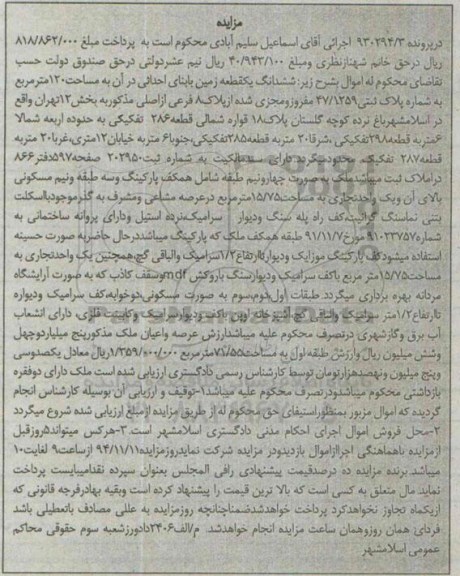 مزایده
درپرونده ۹۳۰۲۹۴/۳ اجرائی آقای اسماعیل سلیم آبادی محکوم است به پرداخت مبلغ ۸۱۸/۸۶۲/۰۰۰
ریال درحق خانم شهنازنظری ومبلغ ۴۰/۹۴۳/۱۰۰ ریال نیم عشردولتی درحق صندوق دولت حسب
تقاضای محکوم له اموال بشرح زیر: ششدانگ یکقطعه زمین بابنای احداثی در آن به مساحت۱۲۰مترمربع
به شماره پلاک ثبتی۴۷/۱۲۵۹ مفروزومجزی شده ازپلاک۸ فرعی ازاصلی مذکوربه بخش۱۲تهران واقع
در اسلامشهرباغ نرده کوچه گلستان پلاک۱۸ قواره شمالی قطعه۲۸۶ تفکیکی به حدوده اربعه شمالا
۶متربه قطعه۲۹۸تفکیکی ،شرقا۲۰ متربه قطعه۲۸۵تفکیکی،جنوبا۶ متربه خیابان۱۲متری،غربا۲۰ متربه
قطعه۲۸۷ تفکیکی محدودمیگردد دارای سندمالکیت به شماره ثبت۲۰۲۹۵۰ صفحه۵۹۷دفتر۸۶۶
دراملاک ثبت میباشدملک به صورت چهارونیم طبقه شامل همکف پارکینگ وسه طبقه ونیم مسکونی
بالای آن ویک واحدتجاری به مساحت۱۵/۷۵مترمربع درعرصه مشاعی ومشرف به گذرموجودبااسکلت
بتنی نماسنگ گرانیت،کف راه پله سنگ ودیوار سرامیک،نرده استیل ودارای پروانه ساختمانی به
شماره۹۱۰۲۳۷۵۷مورخ۹۱/۱۱/۷ طبقه همکف ملک که پارکینگ میباشددرحال حاضربه صورت حسینه
استفاده میشودکف پارکینگ موزایک ودیوارتاارتفاع۱/۲سرامیک والباقی گچ،همچنین یک واحدتجاری به
مساحت۱۵/۷۵متر مربع باکف سرامیک ودیوارسنگ باروکش mdfوسقف کاذب که به صورت آرایشگاه
مردانه بهره برداری میگردد طبقات اول،دوم،سوم به صورت مسکونی،دوخوابه،کف سرامیک ودیواره
تاارتفاع۱/۲متر سرامیک والباقی گچ،آشپزخانه اوپن باکف ودیوار سرامیک وکابینت فلزی، دارای انشعاب
آب برق وگازشهری درتصرف محکوم علیه میباشدارزش عرصه واعیان ملک مذکورپنج میلیاردوچهل
وشش میلیون ریال وارزش طبقه اول به مساحت۷۱/۵۵مترمربع ۱/۳۵۹/۰۰۰/۰۰۰ریال معادل یکصدوسی
وپنج میلیون ونهصدهزارتومان توسط کارشناس رسمی دادگستری ارزیابی شده است ملک دارای دوفقره
بازداشتی محکوم میباشدودرتصرف محکوم علیه میباشد۱-توقیف و ارزیابی آن بوسیله کارشناس انجام
گردیده که اموال مزبور بمنظوراستیفای حق محکوم له از طریق مزایده ازمبلغ ارزیابی شده شروع میگردد
۲-محل فروش اموال اجرای احکام مدنی دادگستری اسلامشهر است ۳-هرکس میتواند۵روزقبل
ازمزایده باهماهنگی اجراازاموال بازدیدودر مزایده شرکت نمایدروزمزایده۹۴/۱۱/۱۱ ازساعت۹ لغایت۱۰
میباشد.برنده مزایده ده درصدقیمت پیشنهادی رافی المجلس بعنوان سپرده نقدامیبایست پرداخت
نماید.مال متعلق به کسی است که بالا ترین قیمت را پیشنهاد کرده است وبقیه بهادرفرجه قانونی که
ازیکماه تجاوز نخواهدکرد پرداخت خواهدشدضمناچنانچه روزمزایده به عللی مصادف باتعطیلی باشد
فردای همان روزوهمان ساعت مزایده انجام خواهدشد. م/الف۲۴۰۶دادورزشعبه سوم حقوقی محاکم
عمومی اسلامشهر